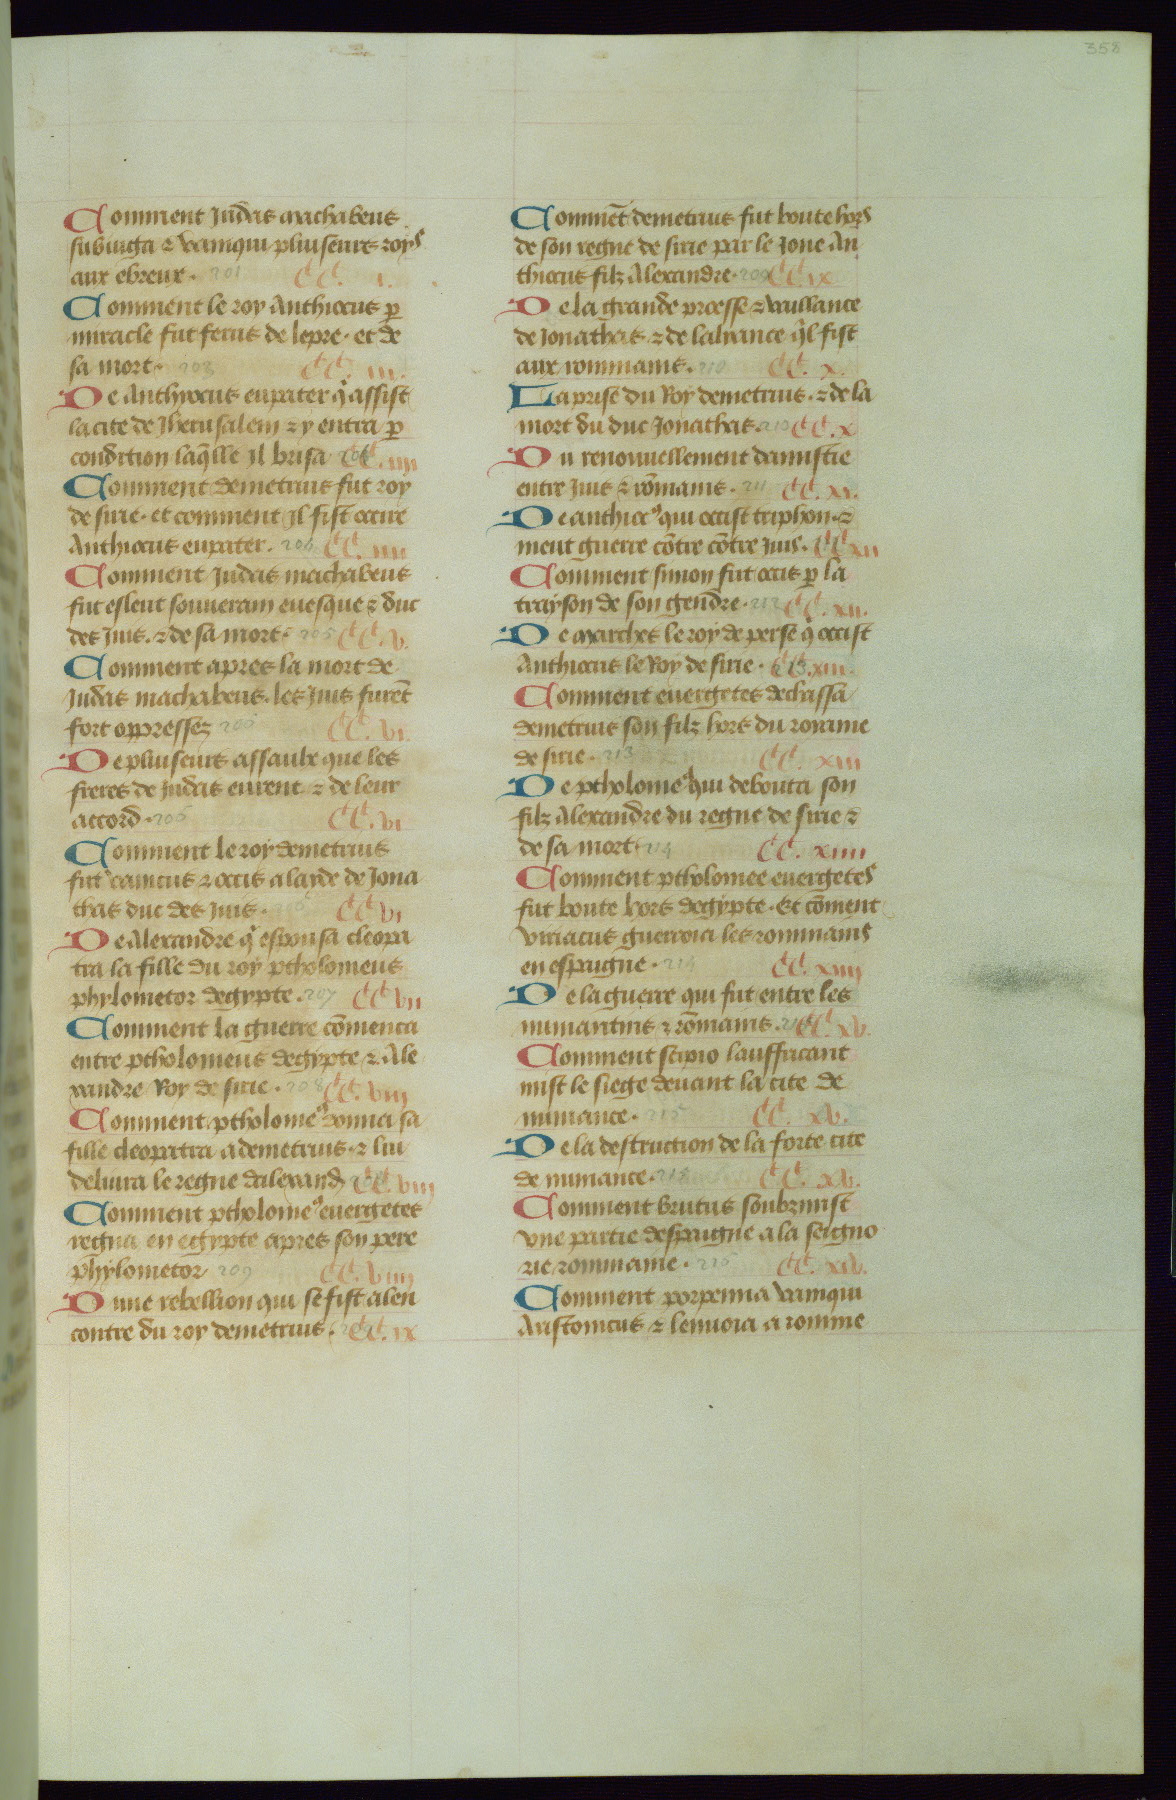 358
Comment Judas machabeus
subiuga ⁊ vainqui pluiseurs roys
aux ebreux . 201 CC. i.
Comment le roy Anthiocus p̱
miracle fut ferus de lepre . et de
sa mort . 203 CC. iii.
De Anthyocus eupater q̇ assist
la cite de Jherusalem ⁊ y entra p̱
condition laq̄lle Jl brisa CC. iiii
Comment demetrius fut roy
de sirie . et comment Jl fist occire
Anthiocus eupater . 206 CC. iiii
Comment Judas machabeus
fut esleut souuerain euesque ⁊ duc
des Juis . ⁊ de sa mort . 205 CC. v.
Comment apres la mort de
Judas machabeus . les Juis furēt
fort oppressez 206 CC. vi.
De pluiseurs assaulx que les
freres de Judas eurent . ⁊ de leur
accord . 206 CC. vi
Comment le roy demetrius
fut vaincus ⁊ occis a layde de Jona
thas duc des Juis . CC vi
De Alexandre q̇ espousa cleopa
tra la fille du roy ptholomeus
phylometor degypte . 207 CC vii
Comment la guerre cōmenca
entre ptholomeus degypte ⁊ Ale
xandre Roy de sirie . 208 CC. viii
Comment ptholomeꝰ donna sa
fille cleopatra a demetrius . ⁊ lui
deliura le regne dalexand̄ CC. viii
Comment ptholomeꝰ euergetes
regna en egypte apres son pere
phylometor 209 CC. viiii
Dune rebellion qui se fist alen
contre du roy demetrius . CC. ix
Commēt demetrius fut boute hors
de son regne de sirie par le Jone An
thiocus filz Alexandre . 209 CC. ix
De la grande proesse ⁊ vaillance
de Jonathas ⁊ de laliance q̄l fist
aux rommains . 210 CC. x.
La prise du Roy demetrius . ⁊ de la
mort du duc Jonathas . 210 CC. x
Du renouuellement damistie
entre Juis ⁊ rōmains . 211 CC. xi.
De anthiocꝰ qui occist triphon . ⁊
meut guerre cōtre cōtre Juis . CC xii
Comment simon fut occis p̱ la
trayson de son gendre . 212 CC. xii.
De Marches le roy de perse q̇ occist
Anthiocus le Roy de sirie . CC. xiii.
Comment euergetes dechassa
demetrius son filz hors du roiaume
de sirie . 213 CC. xiii
De ptholomeꝰ qui debouta son
filz Alexandre du regne de sirie ⁊
de sa mort . 214 CC. xiiii
Comment ptholomee euergetes
fut boute hors degypte . Et cōment
viriatus guerroia les rommains
en espaigne . 214 CC. xiiii
De la guerre qui fut entre les
numantins ⁊ rōmains . CC. xv.
Comment scipio lauffricant
mist le siege deuant la cite de
numance . 215 CC. xv.
De la destruction de la forte cite
de numance . 215 CC. xv.
Comment brutus soubzmist
vne partie despaigne a la seigno
rie rommaine . 215 CC. xv.
Comment porpenna vainqui
Aristonicus ⁊ lenuoia a romme